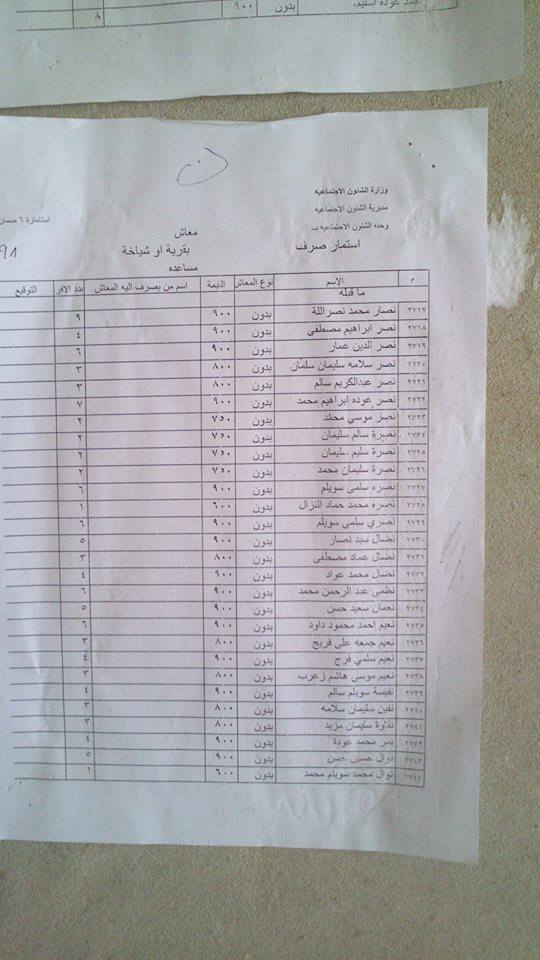 احمد عوده اسليم، بدون ٩٠٠
٨
وزارة الشئون الاجتماعيه
مديرية الشئون الاجتماعيه
وحده الشئون الاجتماعيه بـ
استمارة ٦ ضمان
معاش
استمار صرف بقرية او شياخة
مساعده
٩٨
م الاسم نوع المعاش القيمة اسم من يصرف اليه المعاش عدد الافر التوقيع
ما قبله
٢٧١٧ نصار محمد نصرالله بدون ٩٠٠ ٩
٢٧١٨ نصر ابراهيم مصطفى بدون ٩٠٠ ٤
٢٧١٩ نصر الدين عمار بدون ٩٠٠ ٦
٢٧٢٠ نصر سلامه سليمان سلمان بدون ٨٠٠ ٣
٢٧٢١ نصر عبدالكريم سالم بدون ٨٠٠ ٣
٢٧٢٢ نصر عوده ابراهيم محمد بدون ٩٠٠ ٧
٢٧٢٣ نصر موسي محمد بدون ٧٥٠ ٢
٢٧٢٤ نصرة سالم سليمان بدون ٧٥٠ ٢
٢٧٢٥ نصرة سليم سليمان بدون ٧٥٠ ٢
٢٧٢٦ نصرة سليمان محمد بدون ٧٥٠ ٢
٢٧٢٧ نصره سلمى سويلم بدون ٩٠٠ ٦
٢٧٢٨ نصره محمد حماد النزال بدون ٦٠٠ ١
٢٧٢٩ نصري سلمي سويلم بدون ٩٠٠ ٦
٢٧٣٠ نضال سيد نصار بدون ٩٠٠ ٥
٢٧٣١ نضال عماد مصطفى بدون ٨٠٠ ٣
٢٧٣٢ نضال محمد عواد بدون ٩٠٠ ٤
٢٧٣٣ نظمى عبد الرحمن محمد بدون ٩٠٠ ٦
٢٧٣٤ نعمان سعيد حسن بدون ٩٠٠ ٥
٢٧٣٥ نعيم احمد محمود داود بدون ٩٠٠ ٦
٢٧٣٦ نعيم جمعه على فريج بدون ٨٠٠ ٣
٢٧٣٧ نعيم سلمي فرج بدون ٩٠٠ ٤
٢٧٣٨ نعيم موسي هاشم زعرب بدون ٨٠٠ ٣
٢٧٣٩ نفيسة سويلم سالم بدون ٩٠٠ ٤
٢٧٤٠ نفين سليمان سلامه بدون ٨٠٠ ٣
٢٧٤١ نقاوة سليمان مزيد بدون ٨٠٠ ٣
٢٧٤٢ نمر محمد عودة بدون ٩٠٠ ٤
٢٧٤٣ نوال حسين حسن بدون ٩٠٠ ٥
٢٧٤٤ نوال محمد سويلم محمد بدون ٦٠٠ ١